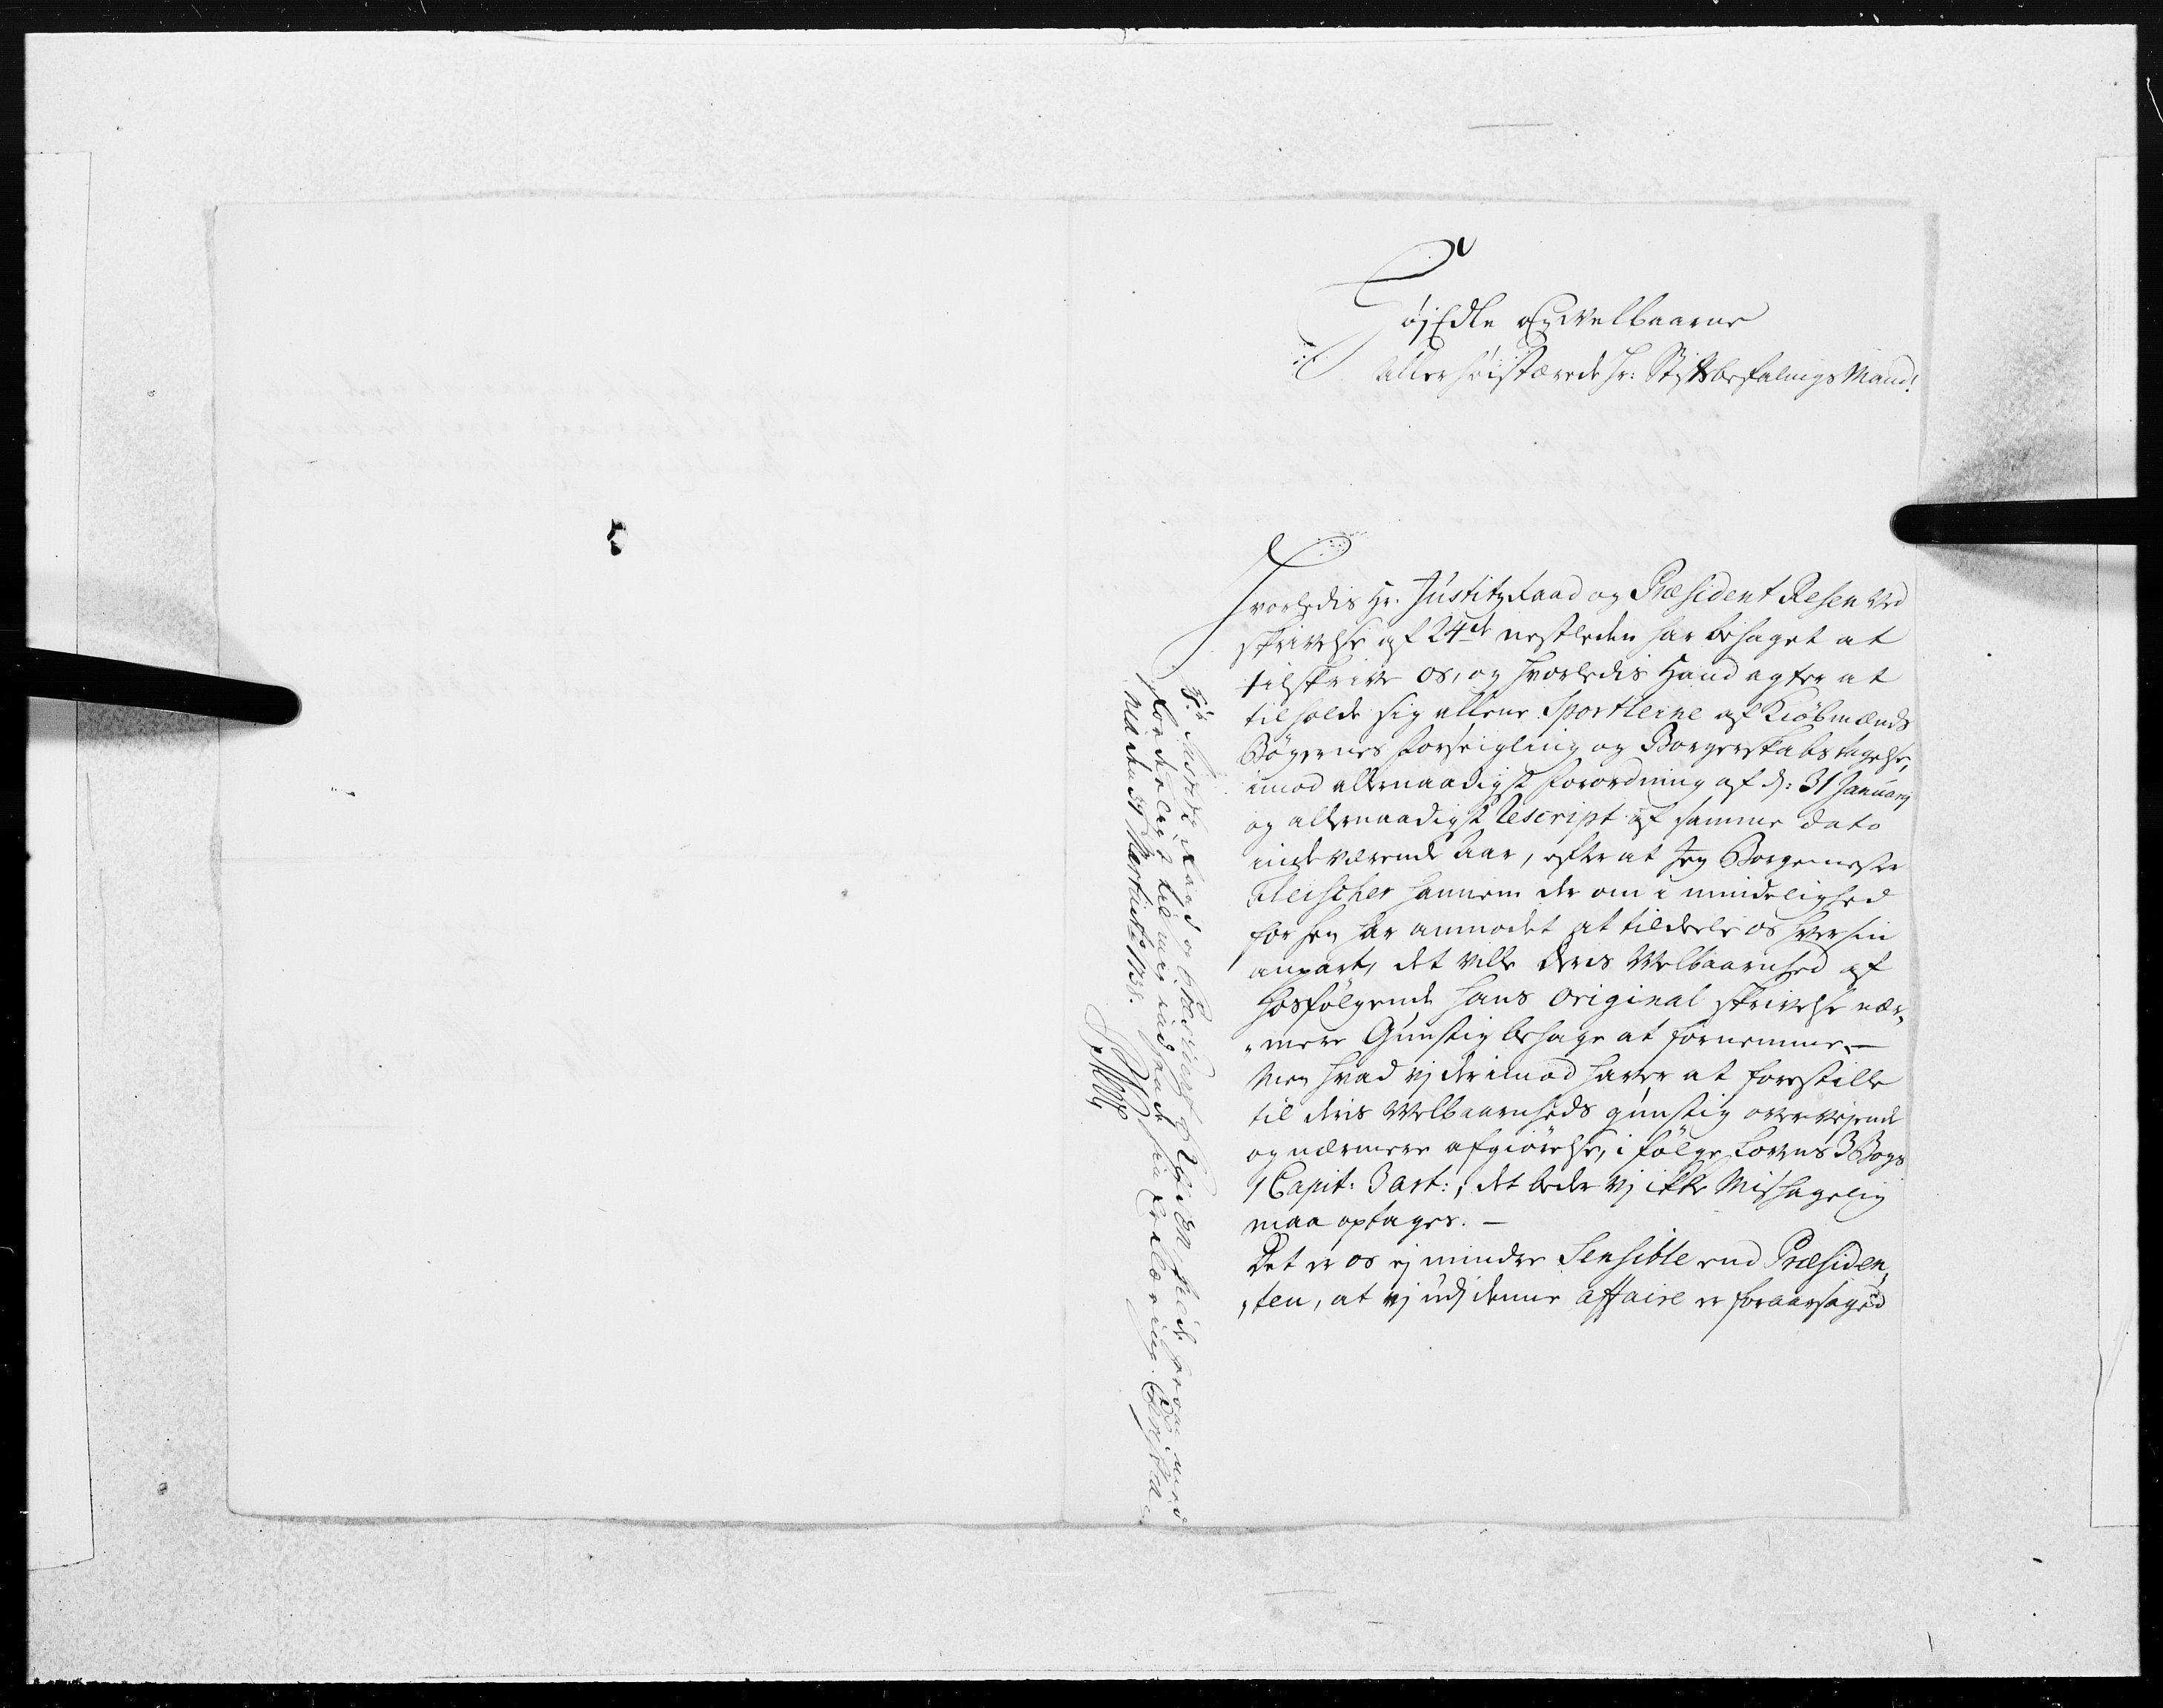 HøjEdle og Welbaarne
Allerhøistærede Hr: StiftsbefalingsMand!
Hvorledis Hr. Justitzraad og Præsident Resen ved
skrivelse af 24de nestleden har behaget at
tilskrive os, og hvorledis Hand agter at
tilholde sig allene Sportlerne af Kiøbmænds
Bøgernes forseigling og Borgerskabs tagelse,
imod allernaadigst forordning af d: 31 January
og allernaadigst Rescript af samme dato
indeværende aar, efter at jeg Borgemester
Fleischer hannem der om i mindelighed
forhen har anmodet at tildeele os hver sin
anpart, det ville deris Welbaarnhed af
hosfølgende hans original skrivelse nær„
„mere Gunstig behage at fornemme. —
Men hvad vj derimod haver at forestille
til deris Welbaarnheds gunstig overvejende
og nærmere afgiørelse, i følge Lovens 3 Bogs
1 Capit: 3 art:, det beder vj ikke Mishagelig
maa optages. —
Det er os ej mindre Sensible end Præsiden„
„ten, at vj udj denne affaire er foraarsaged
Hr. Justitz Raad og Præsident Resen
til mig
erklæring.
Martii 1738.